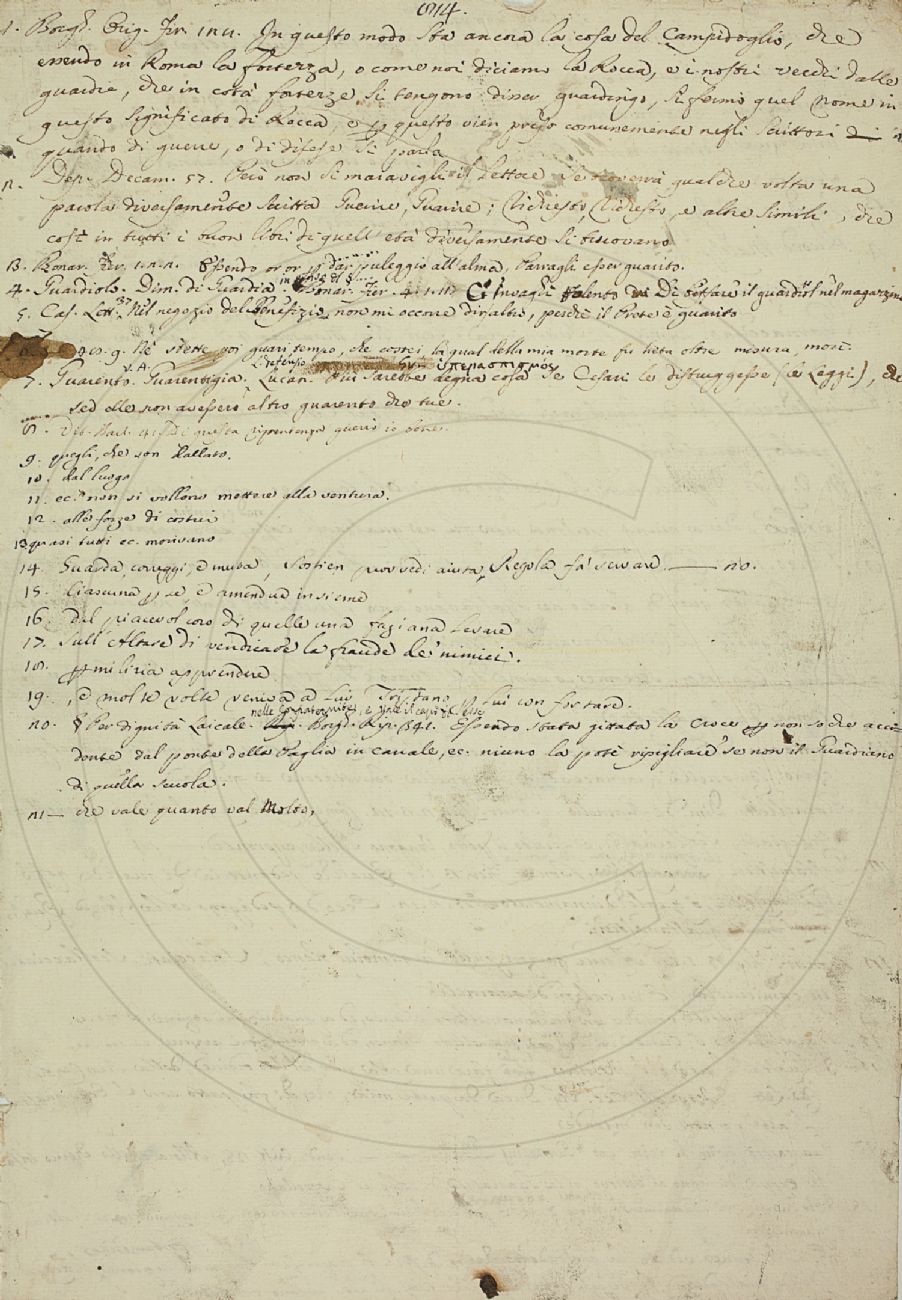 814.
1. Borgh. Orig. Fir. 122. In questo modo sta ancora la cosa del Campidoglio, che
essendo in Roma la fortezza, o come noi diciamo la Rocca, e i nostri vecchi dalle
guardie, che in cotà fortezze si tengono disser guardingo, si fermò quel nome in
questo significato di Rocca, e questo vien preso comunemente negli Scrittori
quando di guerre, o di difese si parla
2. Dep. Decam. 57. Però non si maravigli il Lettore se troverrà qualche volta una
parola diversamente scritta Guerire, Guarire; Chiesto, Chiesto, e altre simili, che
così in tutti i buon libri di quell'età diversamente si truovano
B. Bonar. Fier. 1.2.2. Essendo or or dar puleggio all'alma, Parragli esser guarito.
4. Guardiolo. Dim. di Guardia. Bonar. Fier. 4. 1. il guardiol nel magazzino
5. Cas. Lett. 37 Nel negozio del Benefizio non mi occorre dir altro, perchè il Prete è guarito
g. Nè stette poi guari tempo, che costei la qual della mia morte fu lieta oltre misura, morì.
V. A. Presenzio ὑπερασπισμόν
7. Guarento. Guarentigia. Lucan. Qui sarebbe degna cosa se Cesari le distruggesse (le Leggi), che
sed elle non avessero altro guarento che tue.
8. questa riprentenza guerir io
9. quegli, che son dallato.
10. dal luogo
11. ec. non si vollono mettere alla ventura.
12. alle forze di costui
13 quasi tutti ec. morivano
14. Guarda, correggi, e muta, Sostien provvedi aiuta, Regola fa servare. — no.
15. Ciascuna se, e amendue insieme
16. Del piacevol coro di quelle una Levare
17. Sull'Altare di vendicare la fraude de' nimici.
18. milizia apprendere
19. , e molte volte veniva a Lui Tristano lui confortare.
nelle
20. § Per dignità Laicale. Borgh. Essendo stata gittata la Croce non so che acci-
dente dal ponte della Paglia in canale, ec. niuno la potè ripigliare se non il Guardiano
di quella scuola.
21— che vale quanto val Molto,